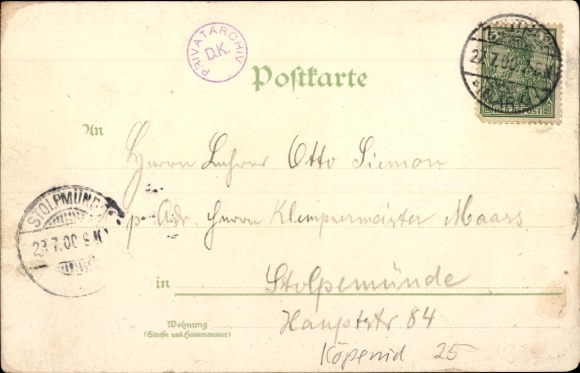 PRIVATARCHIV
D.K.
Postkarte
27.7.00
REICHSPOST
An
Herrn Lehrer Otto Siemon
p. Adr. Herrn Klempnermeister Maass
STOLPMÜNDE
28.7.00 9
in Stolpemünde
Wohnung
(Straße und Hausnummer)
Hauptstr 84
Köpenick 25